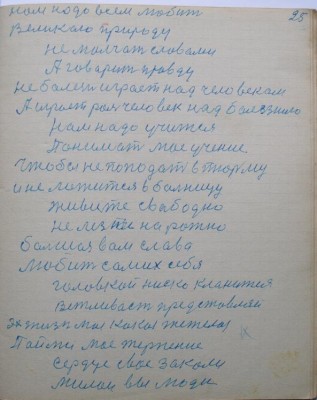 25
нам надо всем любит
Великого природу
не молчат словами
А говарит правду
не болезн играет над человекам
А играет роя человек над болезнию
Нам надо учится
Панимат мае учение
Чтобы не поподат в тюрму
и не ложится в болницу
живите свабодно
не лезте на рожно
балшая вам слава
Любит самих себя
головкой ниско кланятся
Вежливаст представлят
жизн моя какая
Пайми мое терпение
сердце свое закали
Милаи вы люди